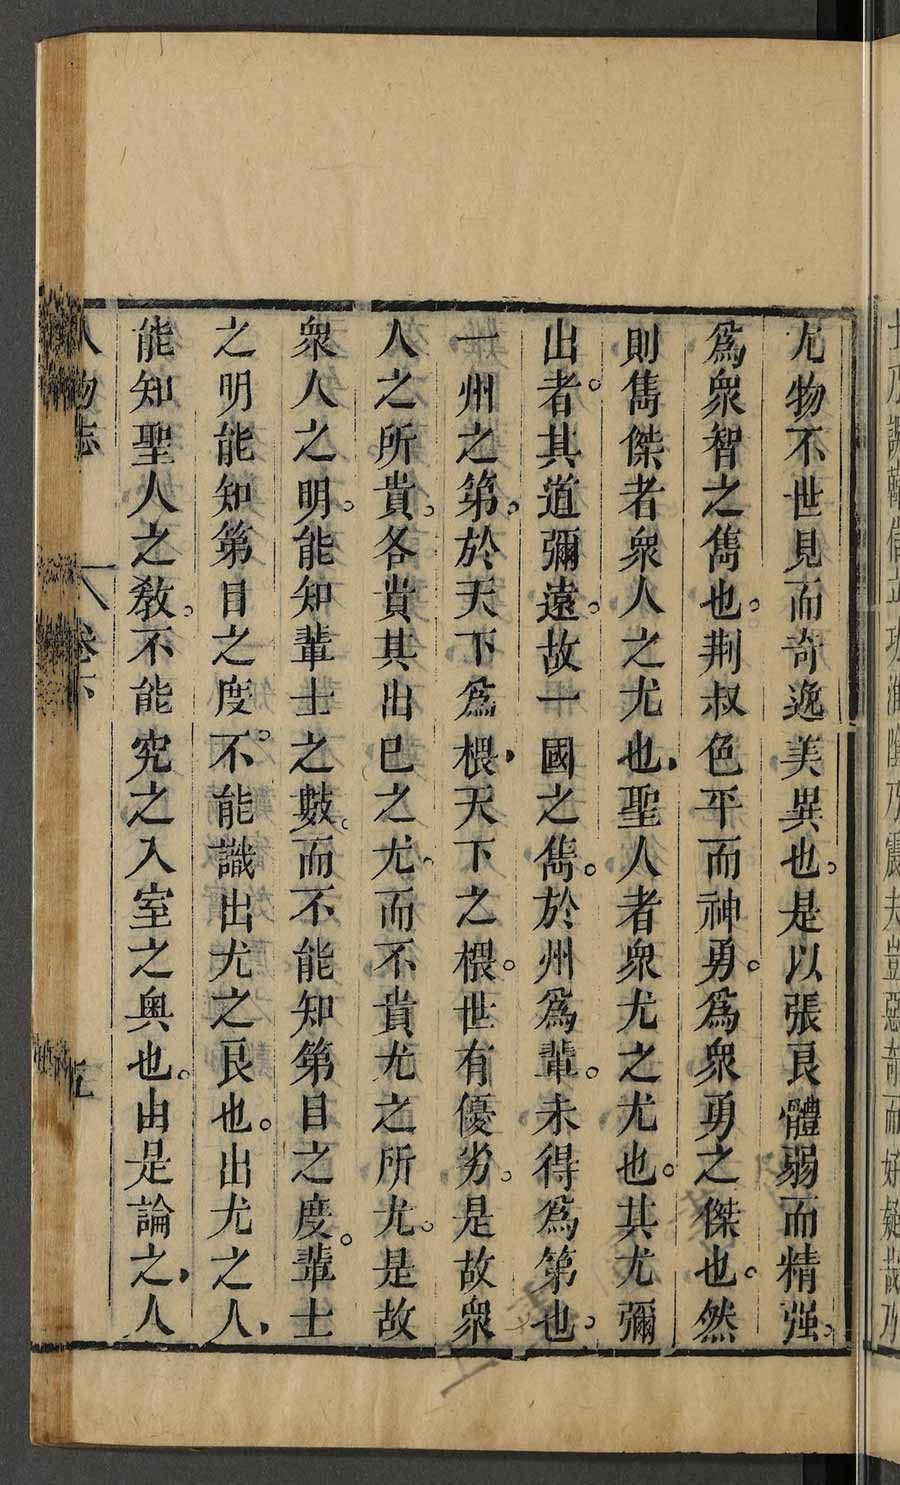 尤物不世見而奇逸美異也。是以張良體弱而精强。
爲衆智之雋也。荆叔色平而神勇。爲衆勇之傑也。然
則雋傑者衆人之尤也。聖人者衆尤之尤也。其尤彌
出者。其道彌遠。故一國之雋。於州爲輩。未得爲第也。
一州之第。於天下爲椳。天下之椳。世有優劣。是故衆
人之所貴。各貴其出已之尤。而不貴尤之所尤。是故
衆人之明。能知輩士之數。而不能知第目之度。輩士
之明能知第目之度。不能識出尤之良也。出尤之人。
能知聖人之敎。不能究之入室之奧也。由是論之。人
人物志 卷下 五